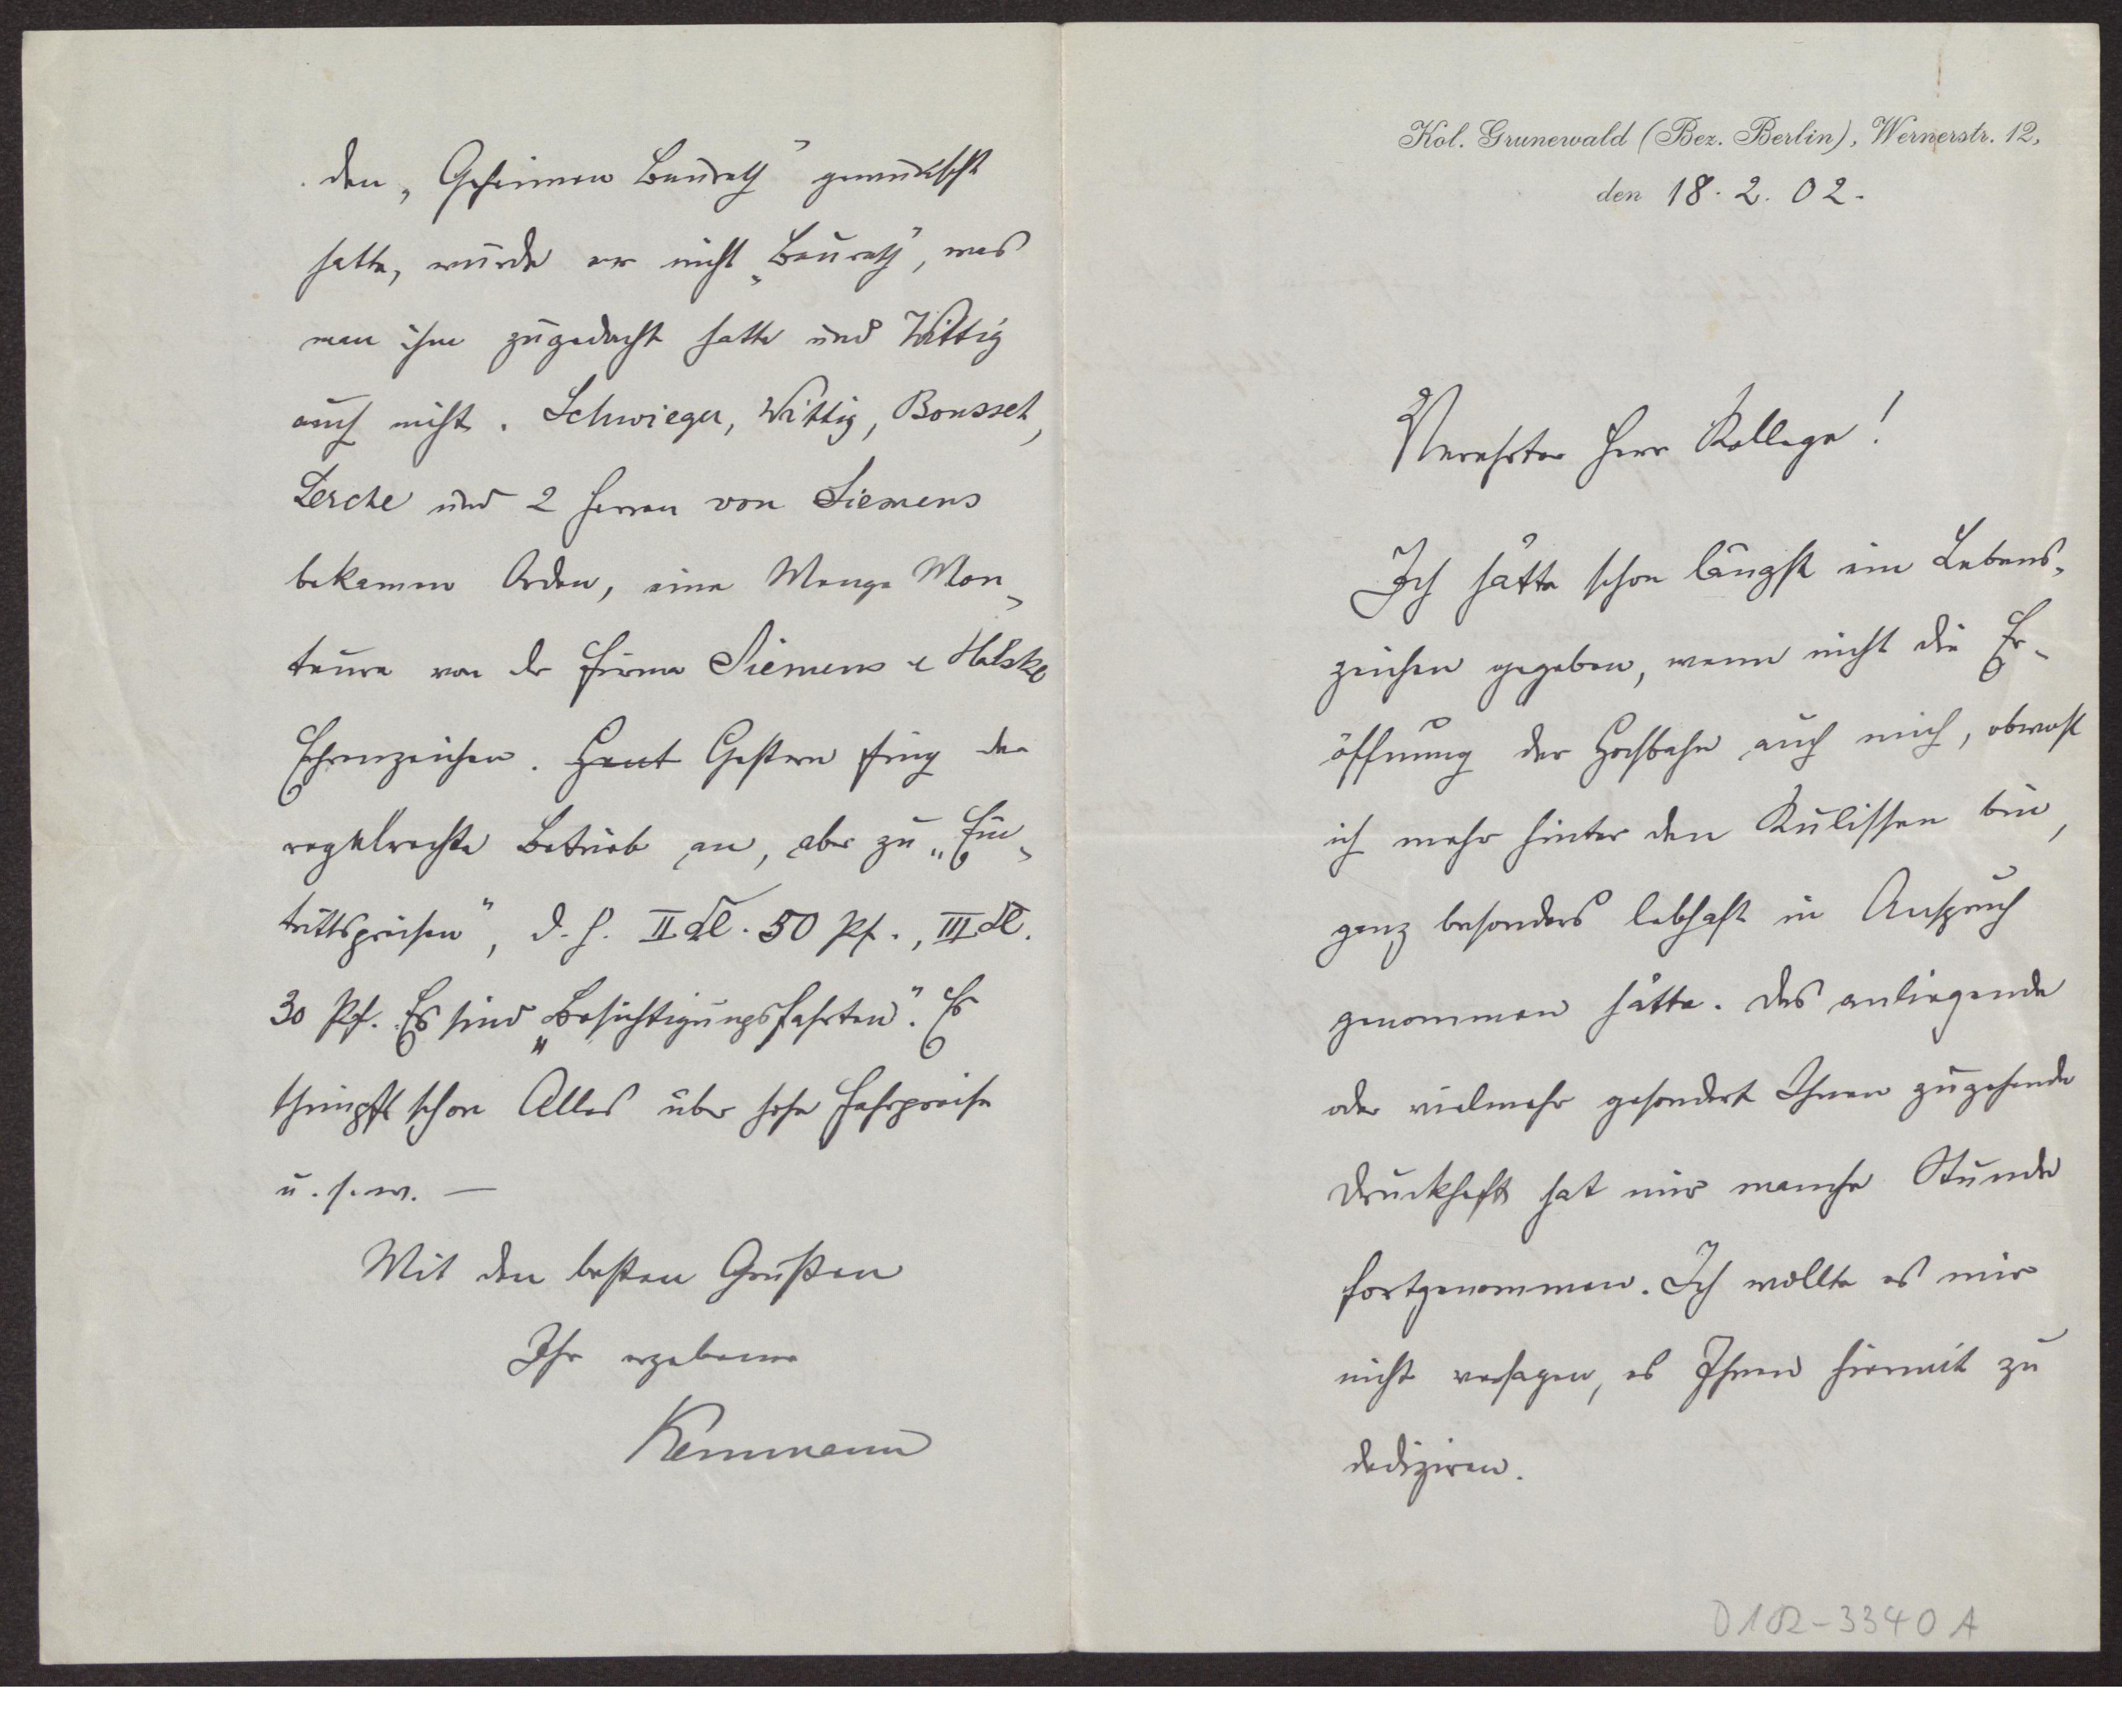 Kol. Grunewald (Bez. Berlin), Wernerstr. 12,
den 18. 2. 02.
Verehrter Herr Kollege!
Ich hätte schon längst ein Lebens-
zeichen gegeben, wenn nicht die Er-
öffnung der Hochbahn auch mich, obwohl
ich mehr hinter den Kulissen bin,
ganz besonders lebhaft in Anspruch
genommen hätte. Das anliegende
oder vielmehr gesondert Ihnen zugehende
Druckheft hat mir manche Stunde
fortgenommen. Ich wollte es mir
nicht versagen, es Ihnen hiermit zu
dediziren.
D102-3340 A
den „Geheimen Baurath" gewünscht
hatte, wurde er nicht „Baurath", was
man ihm zugedacht hatte und Wittig
auch nicht. Schwieger, Wittig, Bousset,
Lerche und 2 Herren von Siemens
bekamen Orden, eine Menge Mon-
teure von der Firma Siemens & Halske
Ehrenzeichen. Heut Gestern fing der
regelrechte Betrieb an, aber zu „Ein-
trittspreisen", d. h. II Kl. 50 Pf., III Kl.
30 Pf. Es sind „Besichtigungsfahrten". Es
schimpft schon Alles über hohe Fahrpreise
u. s. w. —
Mit den besten Grüßen
Ihr ergebener
Kemmann